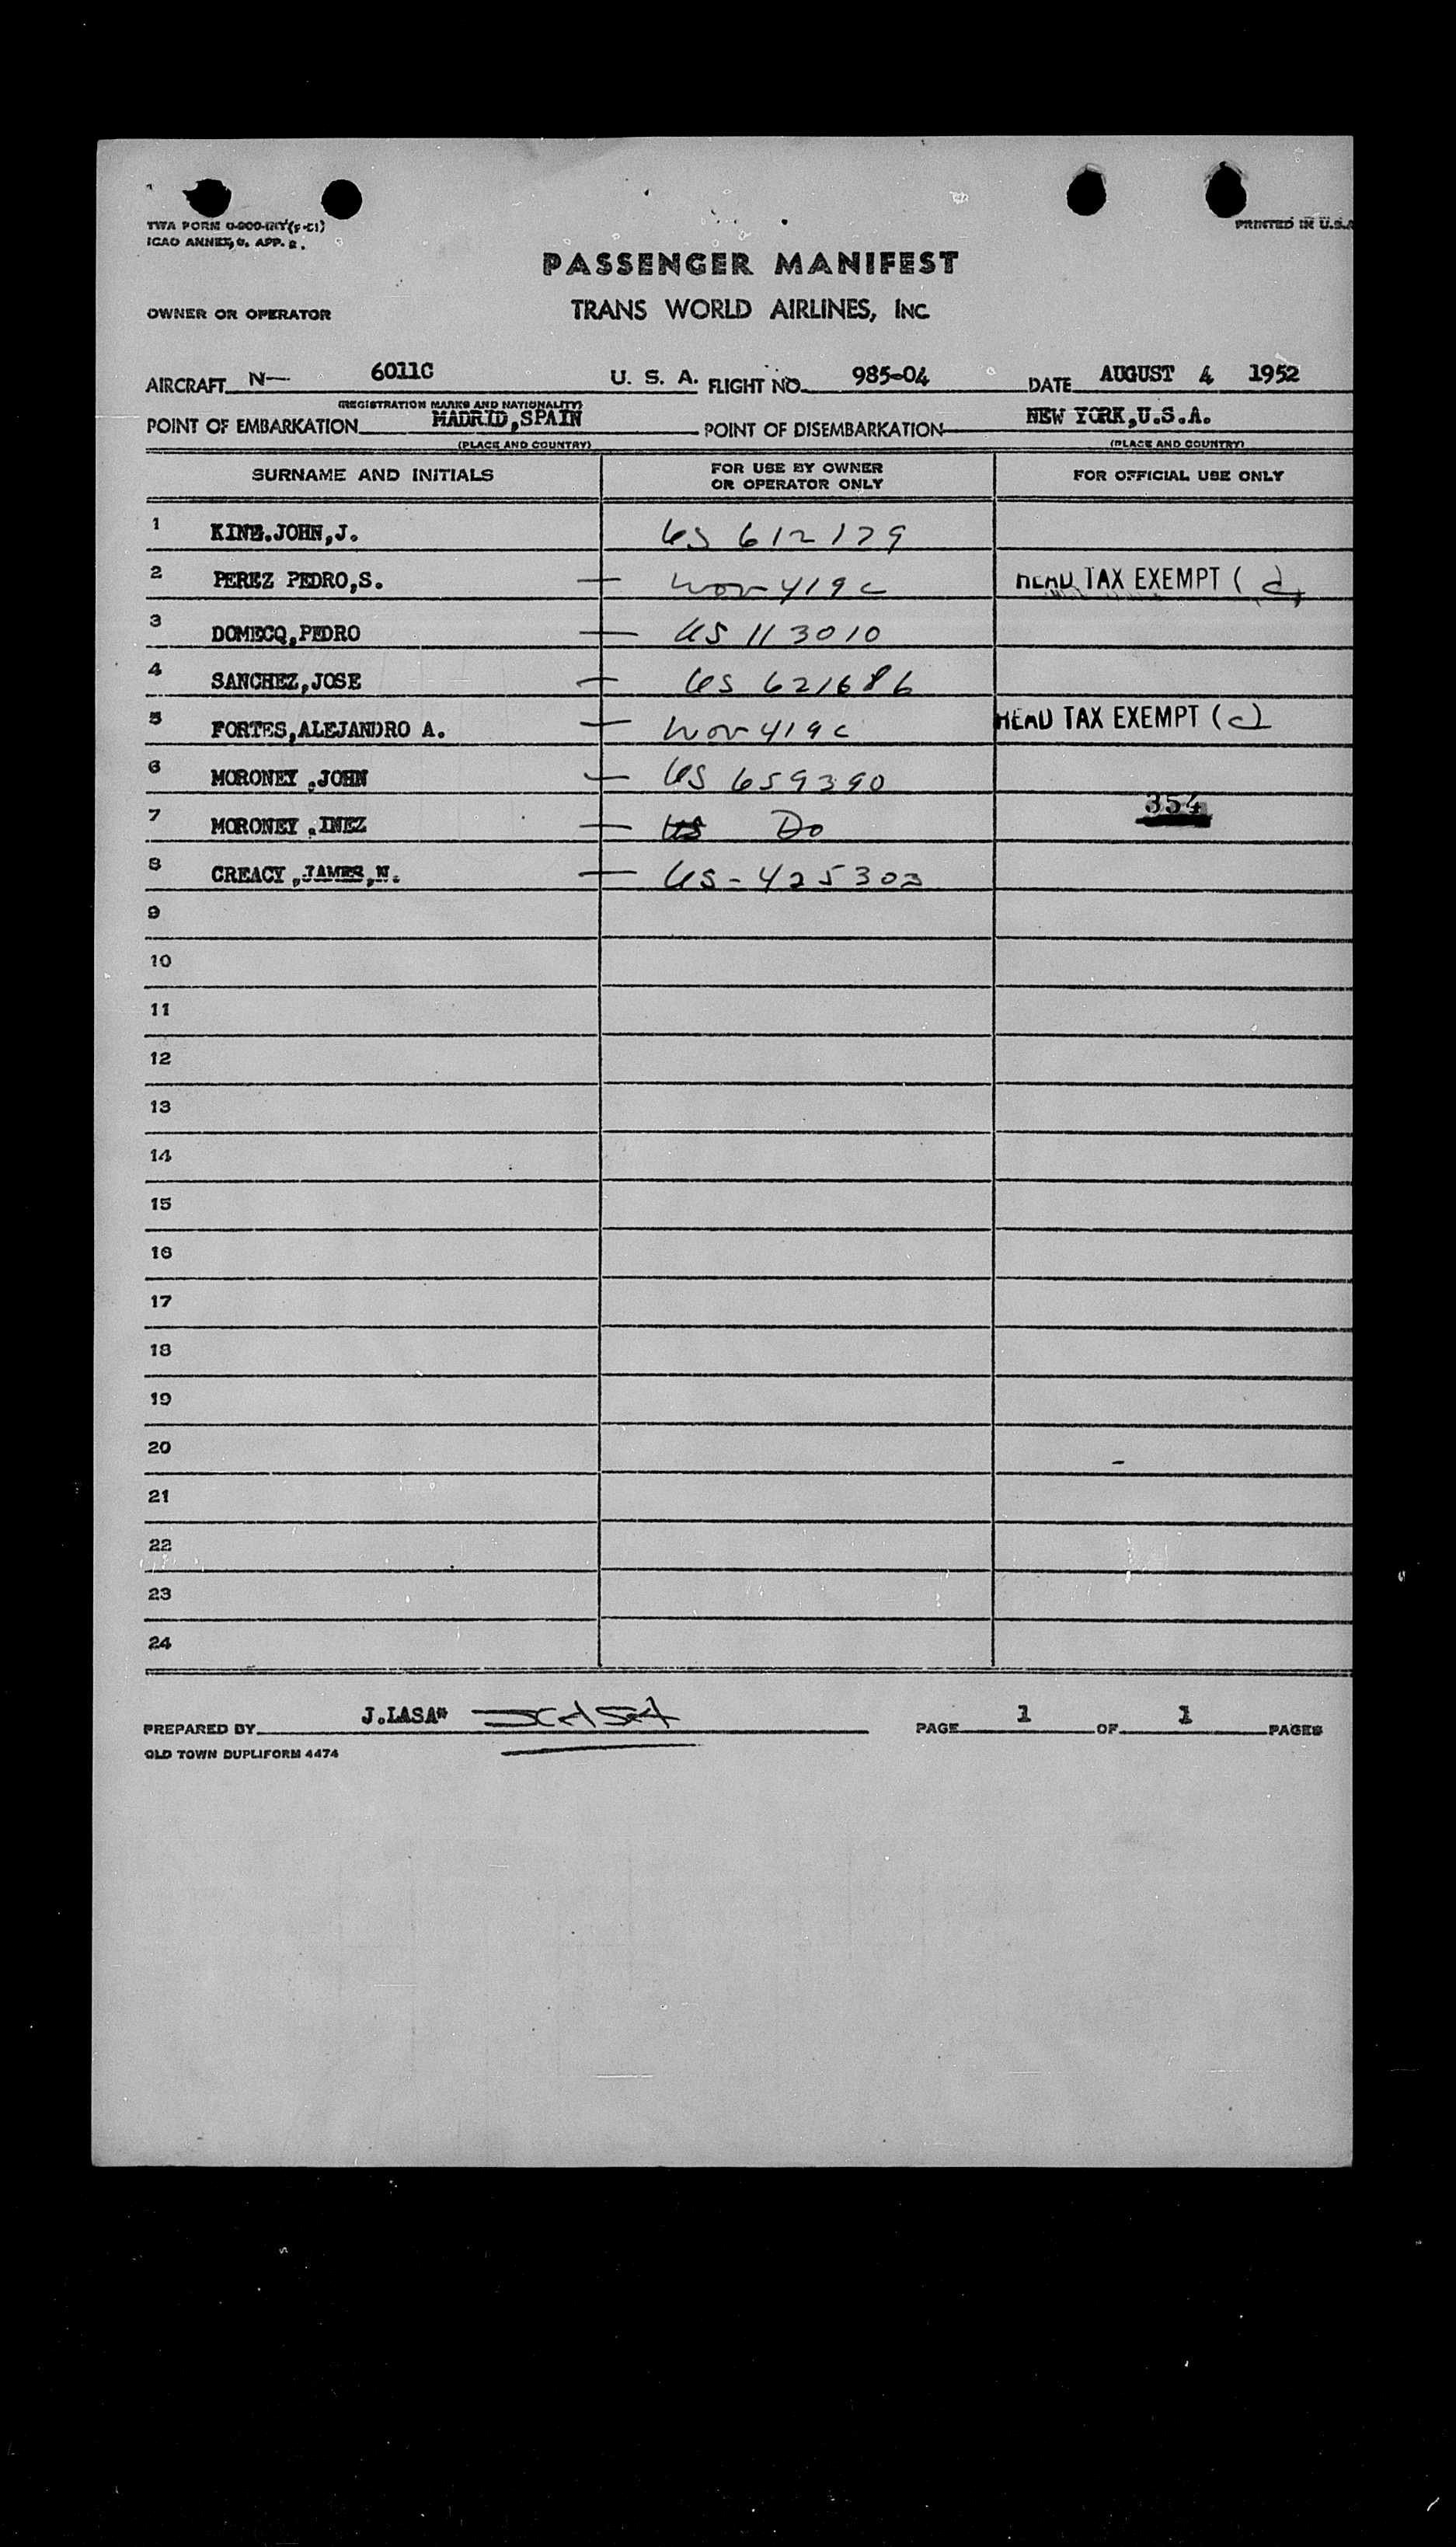 TWA FORM
ICAO ANNEX 9, APP. 2.
PRINTED IN U.S.A
PASSENGER MANIFEST
OWNER OR OPERATOR TRANS WORLD AIRLINES, INC
AIRCRAFT N— 6011C U. S. A. FLIGHT NO. 985-04 DATE AUGUST 4 1952
(REGISTRATION MARKS AND NATIONALITY)
POINT OF EMBARKATION MADRID,SPAIN POINT OF DISEMBARKATION NEW YORK,U.S.A.
(PLACE AND COUNTRY) (PLACE AND COUNTRY)
SURNAME AND INITIALS FOR USE BY OWNER OR OPERATOR ONLY FOR OFFICIAL USE ONLY
1 JOHN,J. US 612129
2 PEREZ PEDRO,S. — 419c HEAD TAX EXEMPT (
3 DOMECQ,PEDRO — US 113010
4 SANCHEZ,JOSE — US 621686
5 FORTES,ALEJANDRO A. — 419c HEAD TAX EXEMPT (c)
6 MORONEY ,JOHN — US 659390
7 MORONEY ,INEZ — US Do 354
8 CREACY ,JAMES,N. — US - 425303
9
10
11
12
13
14
15
16
17
18
19
20
21
22
23
24
PREPARED BY J.LASA" PAGE 1 OF 1 PAGES
OLD TOWN DUPLIFORM 4474